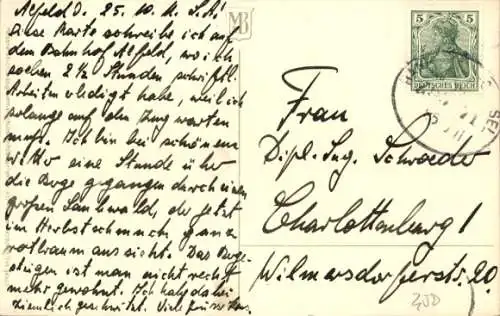 Alfeld D. 25. 10. 11. L. A!
Diese Karte schreibe ich auf
dem Bahnhof Alfeld, wo ich
soeben 2 1/2 Stunden schriftl.
Arbeiten erledigt habe, weil ich
solange auf den Zug warten
muß. Ich bin bei schönem
Wetter eine Stunde über
die Berge gegangen durch einen
großen Laubwald, der jetzt
im Herbstschmuck ganz
rotbraun aussieht. Das Berge-
steigen ist man nicht recht
mehr gewohnt. Ich habe dabei
ziemlich geschwitzt. Viele Grüsse
MB
5 5
DEUTSCHES REICH
SEL
Frau
Dipl. Ing. Schroeder
Charlottenburg 1
Wilmersdorferstr. 20.